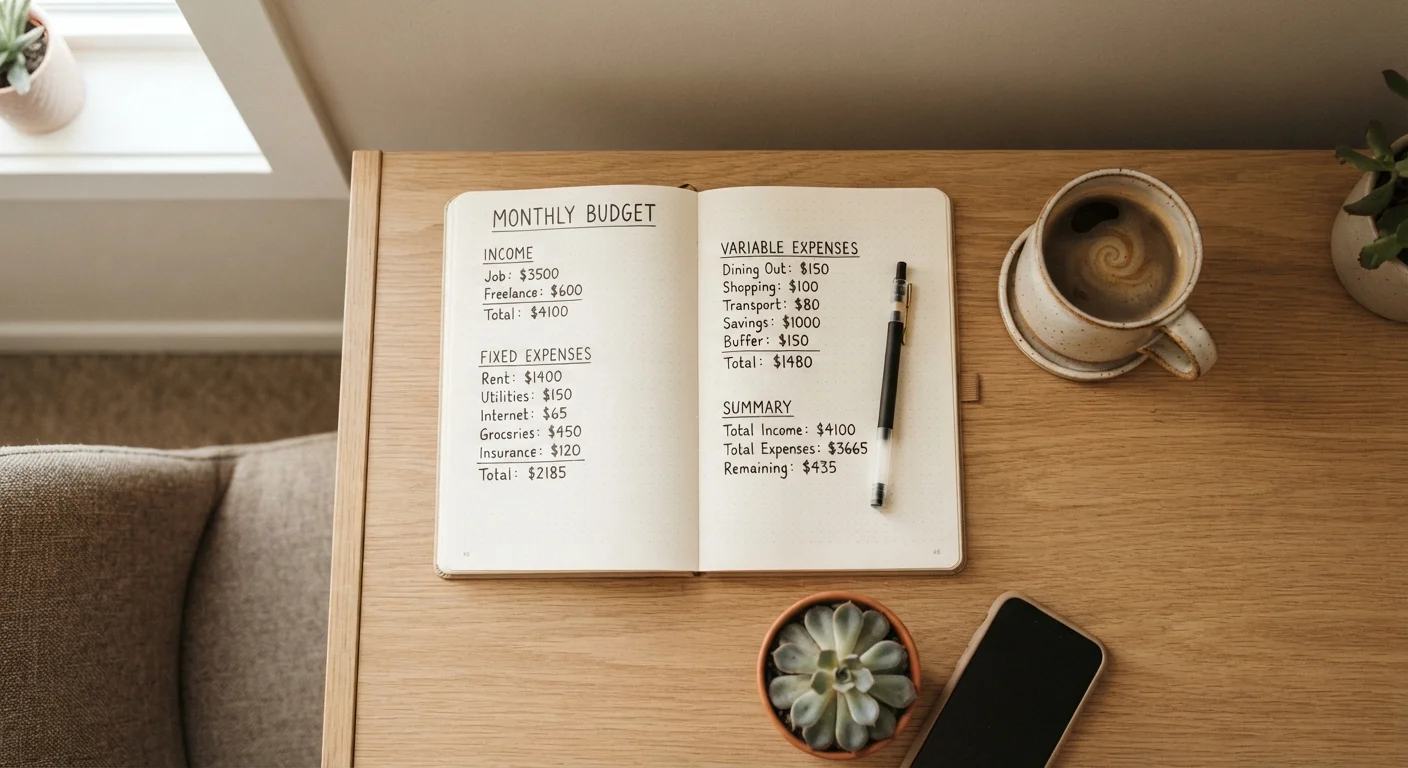 MONTHLY BUDGET
INCOME
Job: $3500
Freelance: $600
Total: $4100
FIXED EXPENSES
Rent: $1400
Utilities: $150
Internet: $65
Grocsries: $450
Insurance: $120
Total: $2185
VARIABLE EXPENSES
Dining Out: $150
Shopping: $100
Transport: $80
Savings: $1000
Buffer: $150
Total: $1480
SUMMARY
Total Income: $4100
Total Expenses: $3665
Remaining: $435